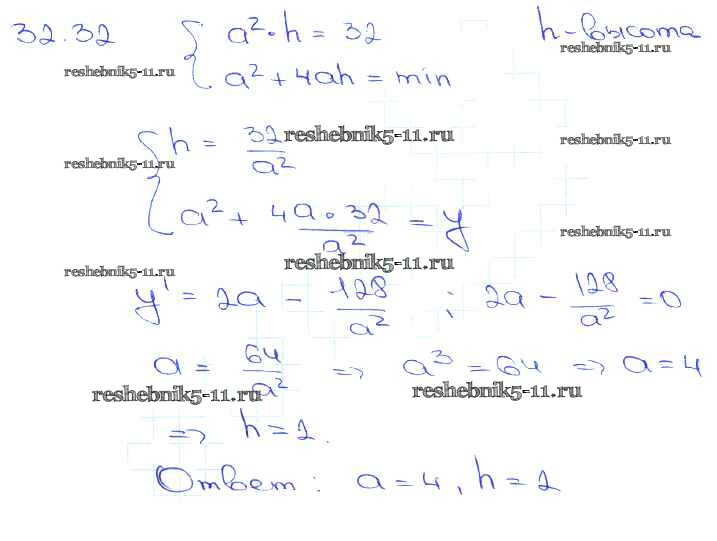 32.32 { a²·h = 32 h - высота
reshebnik5-11.ru reshebnik5-11.ru
a² + 4ah = min
{ h = 32/a² reshebnik5-11.ru reshebnik5-11.ru
reshebnik5-11.ru
a² + 4a·32/a² = y
reshebnik5-11.ru
reshebnik5-11.ru reshebnik5-11.ru
y' = 2a - 128/a² ; 2a - 128/a² = 0
a = 64/a² => a³ = 64 => a = 4
reshebnik5-11.ru reshebnik5-11.ru
=> h = 2.
Ответ: a = 4, h = 2